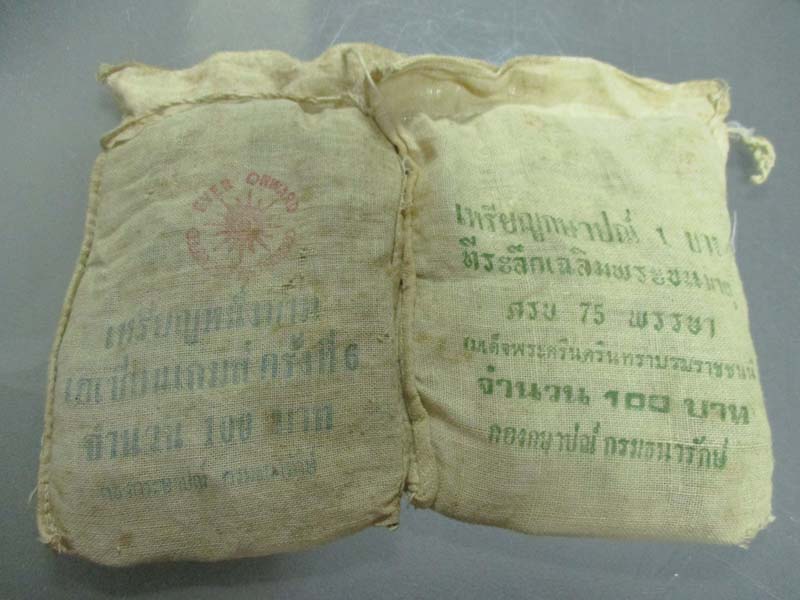 EVER ONWARD
เหรียญหนึ่งบาท
เอเชี่ยนเกมส์ ครั้งที่ 6
จำนวน 100 บาท
กองกระษาปณ์ กรมธนารักษ์
เหรียญกษาปณ์ 1 บาท
ที่ระลึกเฉลิมพระชนมายุ
ครบ 75 พรรษา
สมเด็จพระศรีนครินทราบรมราชชนนี
จำนวน 100 บาท
กองกษาปณ์ กรมธนารักษ์